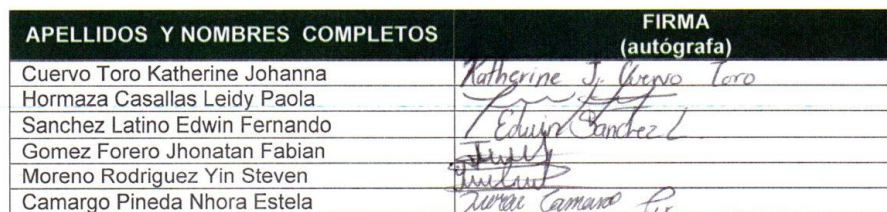 APELLIDOS Y NOMBRES COMPLETOS FIRMA
(autógrafa)
Cuervo Toro Katherine Johanna Katherine J. Cuervo Toro
Hormaza Casallas Leidy Paola
Sanchez Latino Edwin Fernando Edwin Sanchez L
Gomez Forero Jhonatan Fabian
Moreno Rodriguez Yin Steven
Camargo Pineda Nhora Estela Camargo